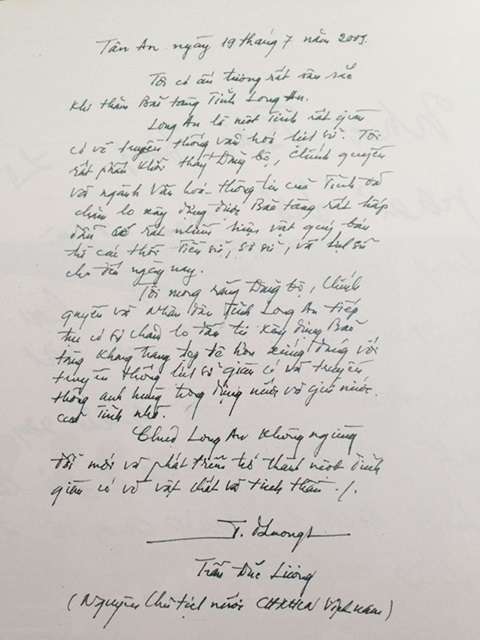 Tân An ngày 19 tháng 7 năm 2009.
Tôi có ấn tượng rất sâu sắc
khi thăm Bảo tàng Tỉnh Long An.
Long An là một Tỉnh rất giàu
có về truyền thống văn hoá lịch sử. Tôi
rất phấn khởi thấy Đảng bộ, chính quyền
và ngành Văn hoá thông tin của Tỉnh đã
chăm lo xây dựng được Bảo tàng rất hấp
dẫn có rất nhiều hiện vật quý báu
từ các thời Tiền sử, sơ sử, và lịch sử
cho đến ngày nay.
Tôi mong rằng Đảng bộ, chính
quyền và Nhân dân tỉnh Long An tiếp
tục có sự chăm lo đầu tư xây dựng Bảo
tàng khang trang đẹp đẽ hơn xứng đáng với
truyền thống lịch sử giàu có và truyền
thống anh hùng trong dựng nước và giữ nước.
của Tỉnh nhà.
Chúc Long An không ngừng
đổi mới và phát triển trở thành một Tỉnh
giàu có về vật chất và tinh thần ./.
T. Đ Lương
Trần Đức Lương
(Nguyên Chủ tịch nước CHXHCN Việt Nam)